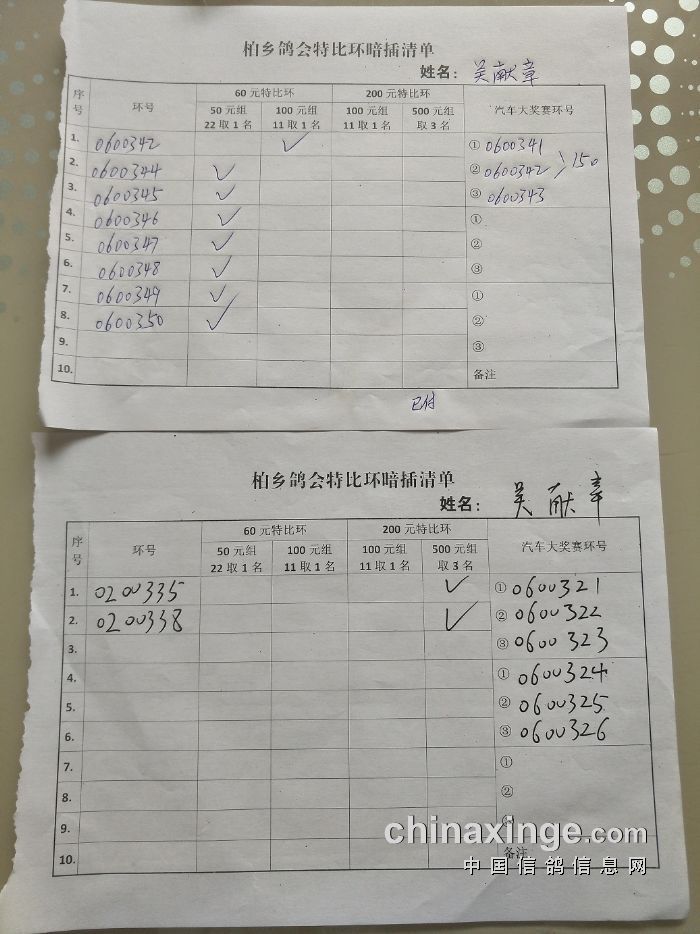 柏乡鸽会特比环暗插清单
姓名：吴献章
序号 环号 60元特比环 200元特比环 汽车大奖赛环号
50元组 22取1名 100元组 11取1名 100元组 11取1名 500元组 取3名
1. 0600342 ✓ ① 0600341
2. 0600344 ✓ ② 0600342 150
3. 0600345 ✓ ③ 0600343
4. 0600346 ✓ ①
5. 0600347 ✓ ②
6. 0600348 ✓ ③
7. 0600349 ✓ ①
8. 0600350 ✓ ②
9. ③
10. 备注
已付
柏乡鸽会特比环暗插清单
姓名：吴献章
序号 环号 60元特比环 200元特比环 汽车大奖赛环号
50元组 22取1名 100元组 11取1名 100元组 11取1名 500元组 取3名
1. 0200335 ✓ ① 0600321
2. 0200338 ✓ ② 0600322
3. ③ 0600323
4. ① 0600324
5. ② 0600325
6. ③ 0600326
7. ①
8. ②
9. ③
10. 备注
chinaxinge.com
中国信鸽信息网